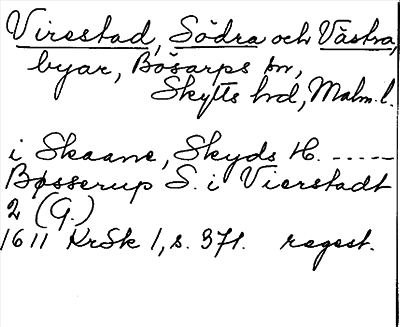 Virestad, Södra och Västra,
byar, Bösarps sn,
Skytts hd, Malm. l.
i Skaane, Skyds H. -----
Bøsserup S. i Vierstadt
2 (G.)
1611 KrSk 1, s. 371. regest.